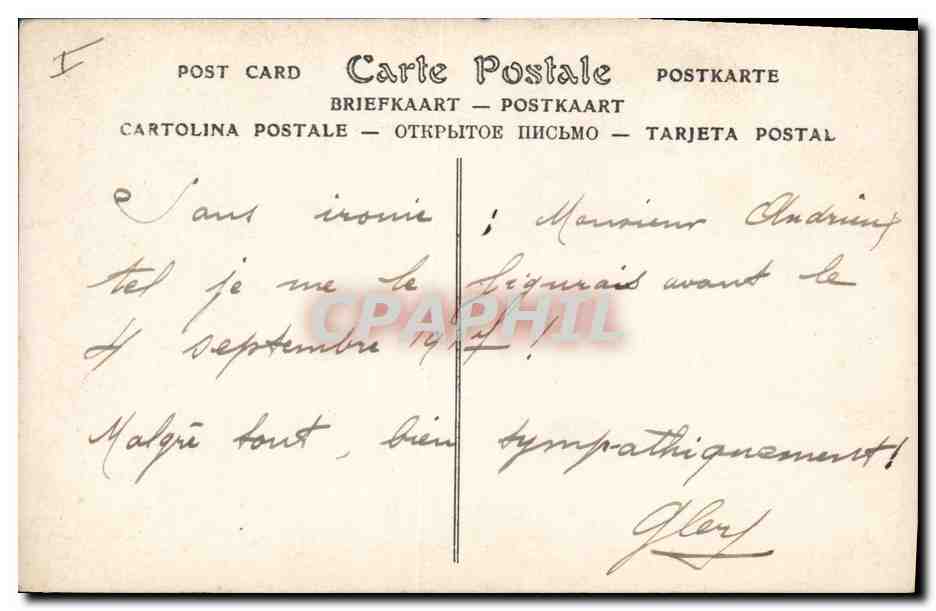 I
POST CARD Carte Postale POSTKARTE
BRIEFKAART — POSTKAART
CARTOLINA POSTALE — ОТКРЫТОЕ ПИСЬМО — TARJETA POSTAL
Sans ironie ; Monsieur Andrieux
tel je me le figurais avant le
4 septembre 1917 !
CPAPHIL
Malgré tout, bien sympathiquement !